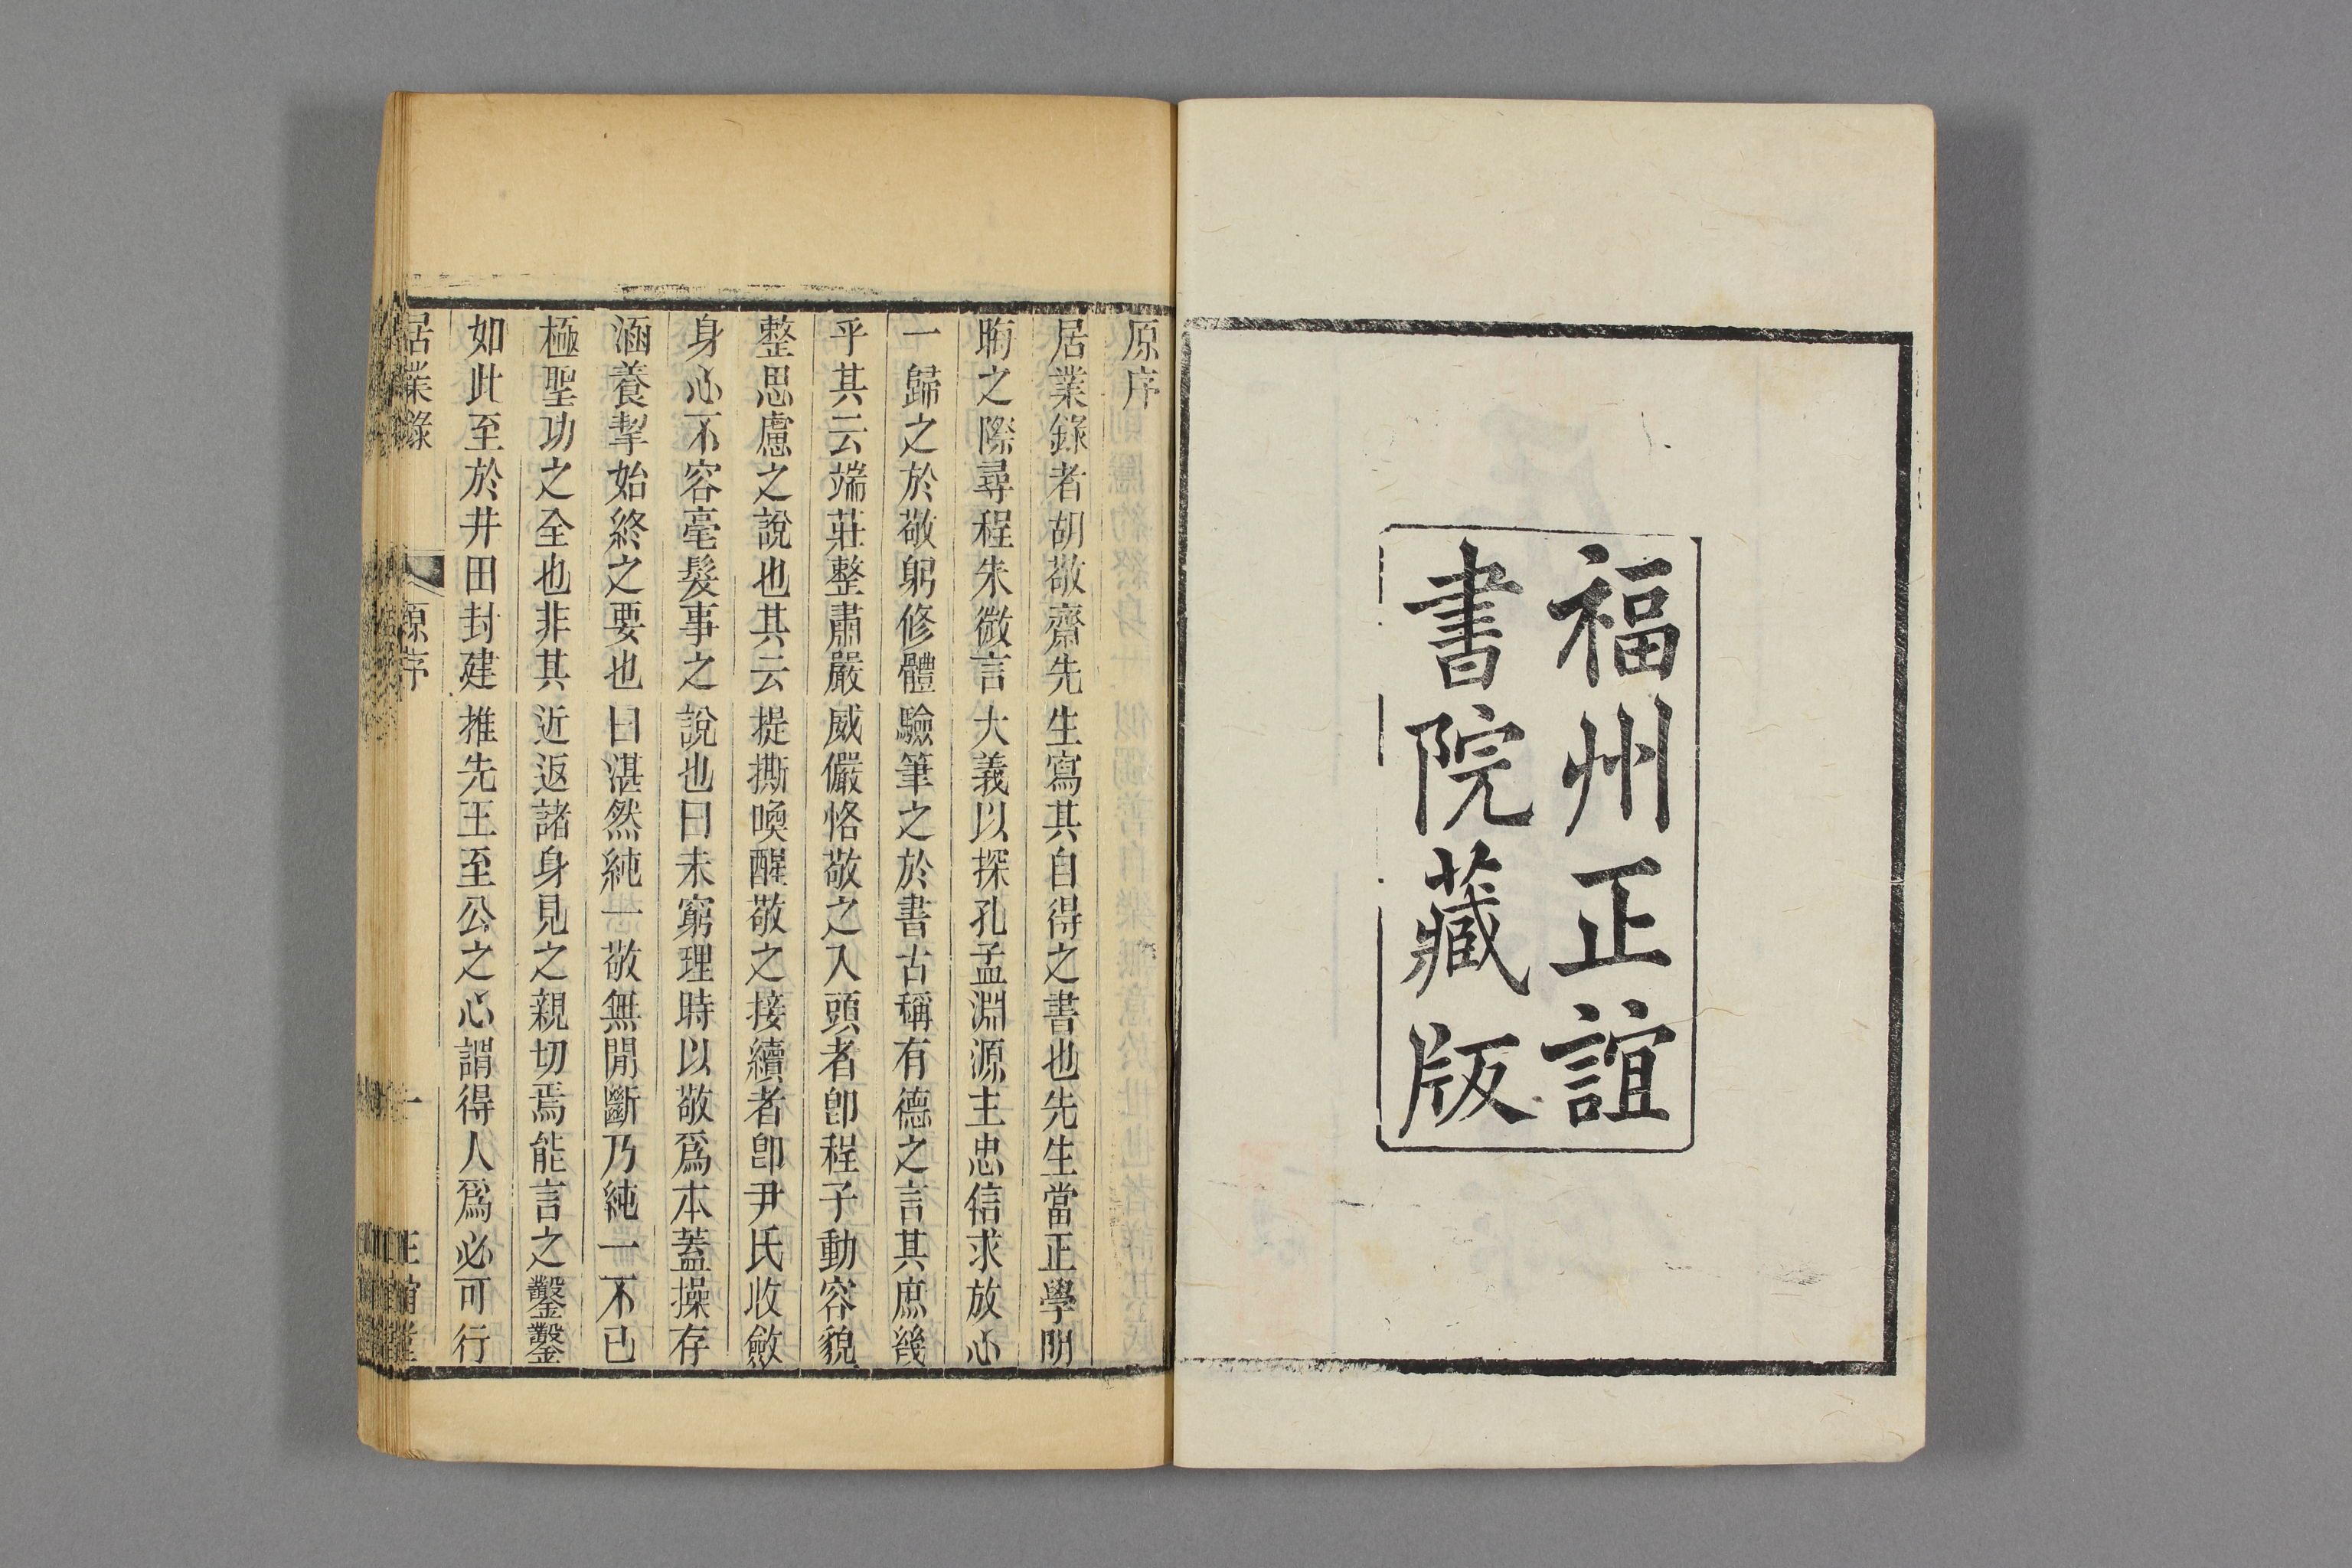 福州正誼
書院藏版
原序
居業錄者胡敬齋先生寫其自得之書也先生當正學阴
晦之際尋程朱微言大義以探孔孟淵源主忠信求放心
一歸之於敬躬修體驗筆之於書古稱有德之言其庶幾
乎其云端莊整肅嚴威儼恪敬之入頭者卽程子動容貌
整思慮之說也其云提撕喚醒敬之接續者卽尹氏收斂
身心不容毫髮事之說也曰未窮理時以敬爲本蓋操存
涵養挈始終之要也曰湛然純一敬無閒斷乃純一不已
極聖功之全也非其近返諸身見之親切焉能言之鑿鑿
如此至於井田封建推先王至公之心謂得人爲必可行
居業錄 原序 一 正誼堂